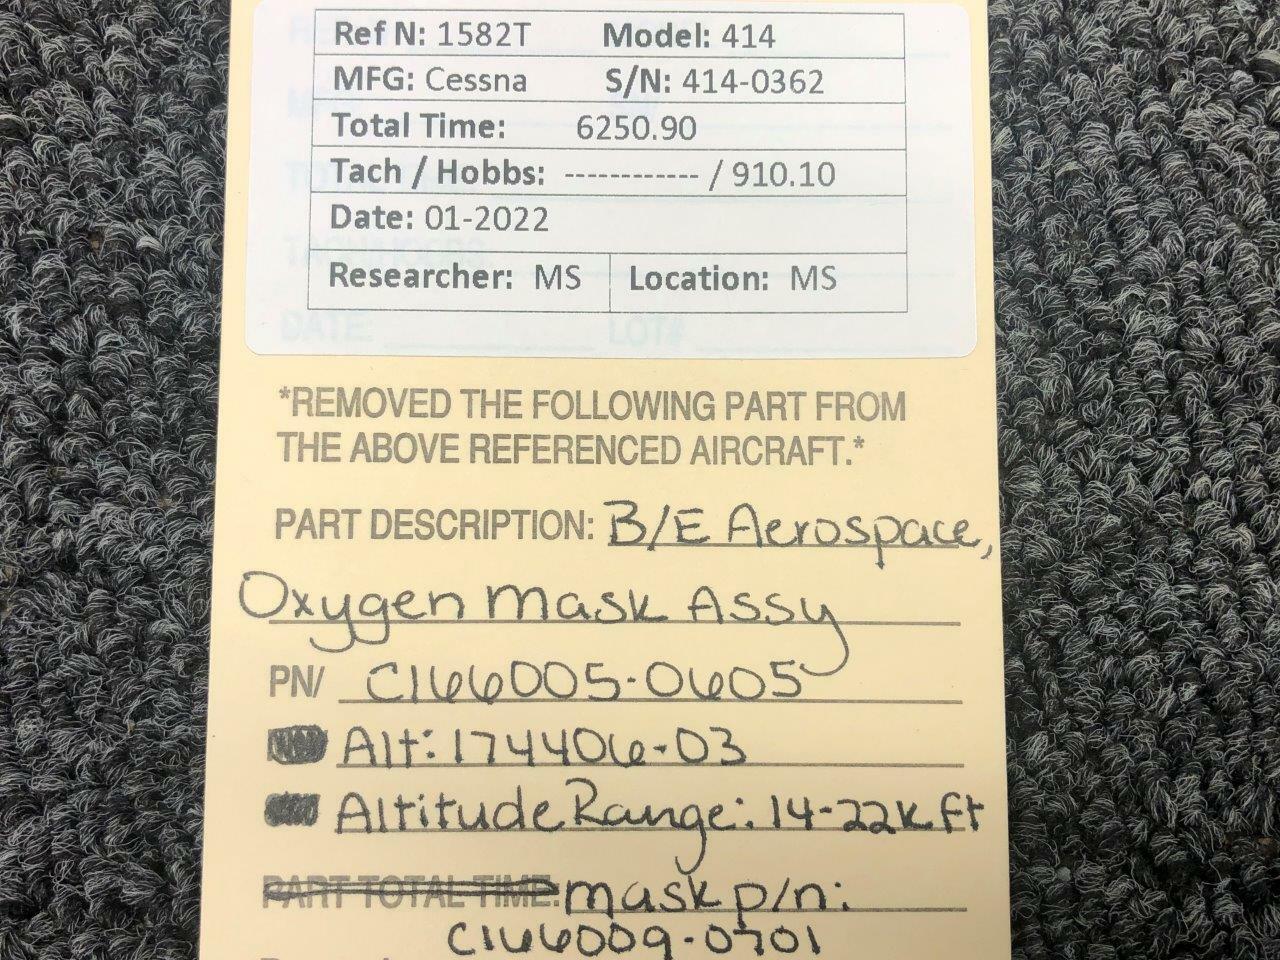 Ref N: 1582T Model: 414
MFG: Cessna S/N: 414-0362
Total Time: 6250.90
Tach / Hobbs: ------------ / 910.10
Date: 01-2022
Researcher: MS Location: MS
DATE: LOT#
*REMOVED THE FOLLOWING PART FROM
THE ABOVE REFERENCED AIRCRAFT.*
PART DESCRIPTION: B/E Aerospace,
Oxygen Mask Assy
PN/ C166005-0605
Alt: 174406-03
Altitude Range: 14-22K ft
PART TOTAL TIME: mask p/n:
C166009-0701